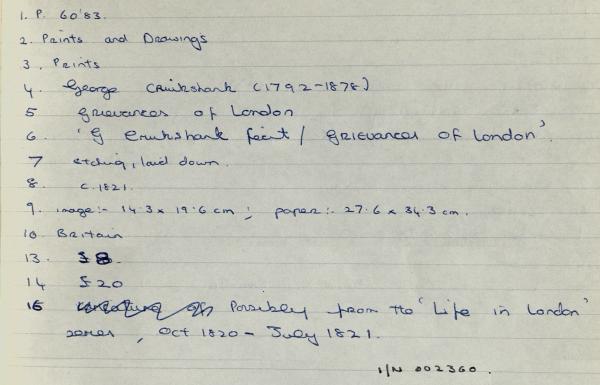 1. P. 60'83.
2. Prints and Drawings
3. Prints
4. George Cruikshank (1792-1878)
5 Grievances of London
6 'G Cruikshank fecit / Grievances of London'.
7 etching, laid down.
8. c.1821.
9. image:- 14.3 x 19.6 cm; paper:- 27.6 x 34.3 cm.
10 Britain
13. 8
14 £20
15 Possibly from the 'Life in London'
series, Oct 1820 - July 1821.
1/N 002360.